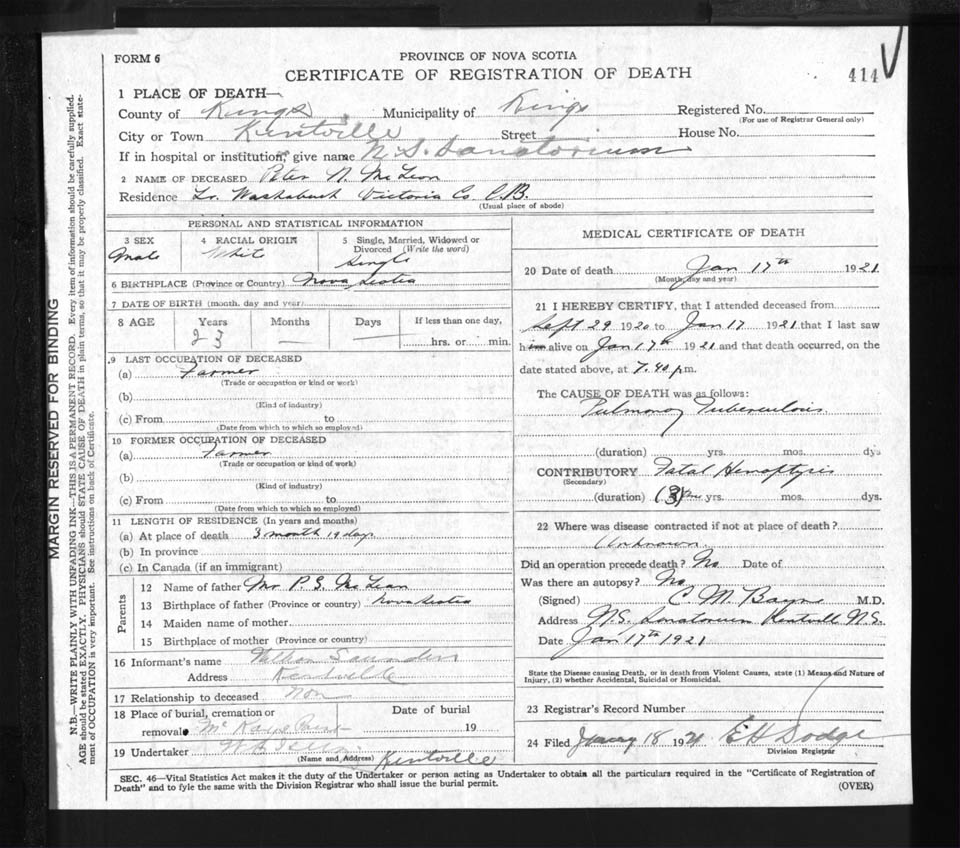 FORM 6
PROVINCE OF NOVA SCOTIA
CERTIFICATE OF REGISTRATION OF DEATH
414
1 PLACE OF DEATH—
County of Kings Municipality of Kings Registered No.
(For use of Registrar General only)
City or Town Kentville Street House No.
If in hospital or institution, give name N.S. Sanatorium
2 NAME OF DECEASED Peter N. McLean
Residence Lr. Washabuck Victoria Co. C.B.
(Usual place of abode)
PERSONAL AND STATISTICAL INFORMATION
3 SEX 4 RACIAL ORIGIN 5 Single, Married, Widowed or
Divorced (Write the word)
Male White Single
6 BIRTHPLACE (Province or Country) Nova Scotia
7 DATE OF BIRTH (month, day and year)
8 AGE Years Months Days If less than one day,
23 — — hrs. or min.
9 LAST OCCUPATION OF DECEASED
(a) Farmer
(Trade or occupation or kind or work)
(b)
(Kind of industry)
(c) From to
(Date from which to which so employed)
10 FORMER OCCUPATION OF DECEASED
(a) Farmer
(Trade or occupation or kind of work)
(b)
(Kind of industry)
(c) From to
(Date from which to which so employed)
11 LENGTH OF RESIDENCE (In years and months)
(a) At place of death 3 month 19 days
(b) In province
(c) In Canada (if an immigrant)
Parents
12 Name of father Mr P. S. McLean
13 Birthplace of father (Province or country) Nova Scotia
14 Maiden name of mother
15 Birthplace of mother (Province or country)
16 Informant's name Saunders
Address Kentville
17 Relationship to deceased Non
18 Place of burial, cremation or Date of burial
removal 19
19 Undertaker
(Name and Address) Kentville
MEDICAL CERTIFICATE OF DEATH
20 Date of death Jan 17th 1921
(Month, day and year)
21 I HEREBY CERTIFY, that I attended deceased from
Sept 29 1920 to Jan 17 1921 that I last saw
him alive on Jan 17th 1921 and that death occurred, on the
date stated above, at 7.40 p.m.
The CAUSE OF DEATH was as follows:
Pulmonary Tuberculosis
(duration) yrs. mos. dys
CONTRIBUTORY Fatal Hemoptysis
(Secondary)
(duration) (3) yrs. mos. dys.
22 Where was disease contracted if not at place of death?
Unknown
Did an operation precede death? No Date of
Was there an autopsy? No
(Signed) C. M. Bayne M.D.
Address N.S. Sanatorium Kentville N.S.
Date Jan 17th 1921
State the Disease causing Death, or in death from Violent Causes, state (1) Means and Nature of
Injury, (2) whether Accidental, Suicidal or Homicidal.
23 Registrar's Record Number
24 Filed January 18 1921 E H Dodge
Division Registrar
SEC. 46—Vital Statistics Act makes it the duty of the Undertaker or person acting as Undertaker to obtain all the particulars required in the "Certificate of Registration of
Death" and to fyle the same with the Division Registrar who shall issue the burial permit.
(OVER)
MARGIN RESERVED FOR BINDING
N.B.—WRITE PLAINLY WITH UNFADING INK—THIS IS A PERMANENT RECORD. Every item of information should be carefully supplied.
AGE should be stated EXACTLY. PHYSICIANS should STATE CAUSE OF DEATH in plain terms, so that it may be properly classified. Exact state-
ment of OCCUPATION is very important. See instructions on back of Certificate.